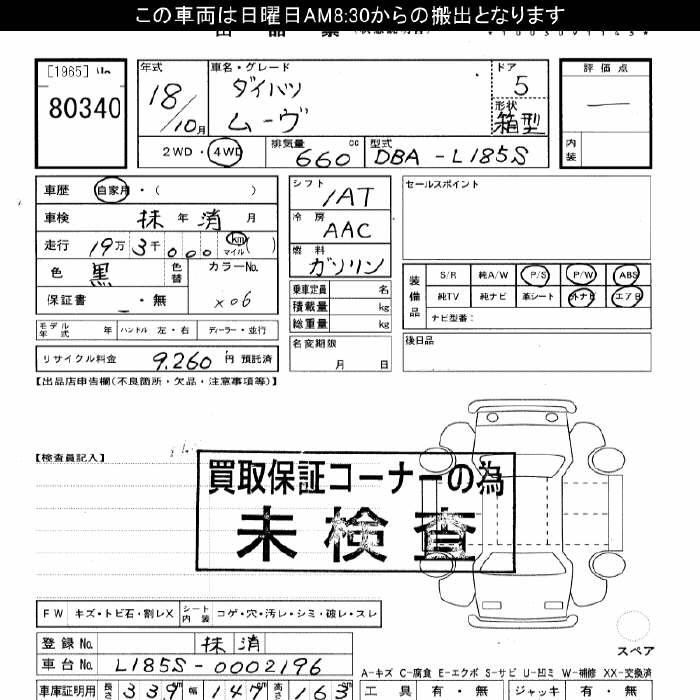 この車両は日曜日AM8:30からの搬出となります
[1965]
80340
年式 車名・グレード ドア 評価点
18/10月 ダイハツ 5
ムーヴ 形状 箱型
内装
2WD・4WD 排気量 660 cc 型式 DBA-L185S
車歴 自家用・( )
車検 抹 年 消 月
走行 19万 3千 0 0 0 km マイル ( )
色 黒 色替 カラーNo.
保証書 ・無 X06
シフト 1AT
冷房 AAC
燃料 ガソリン
乗車定員 名
積載量 kg
総重量 kg
名変期限
月 日
セールスポイント
装備品 S/R 純A/W P/S P/W ABS
純TV 純ナビ 革シート 外ナビ エアB
ナビ型番:
後日品
モデル年式 年 ハンドル 左・右 ディーラー・並行
リサイクル料金 9,260 円 預託済
【出品店申告欄(不良箇所・欠品・注意事項等)】
【検査員記入】
買取保証コーナーの為
未検査
FW キズ・トビ石・割レX シート内装 コゲ・穴・汚レ・シミ・破レ・スレ
スペア
登録No. 抹消
車台No. L185S-0002196
A-キズ C-腐食 E-エクボ S-サビ U-凹ミ W-補修 XX-交換済
車庫証明用 長さ 339 幅 147 高さ 163
工具 有・無 ジャッキ 有・無